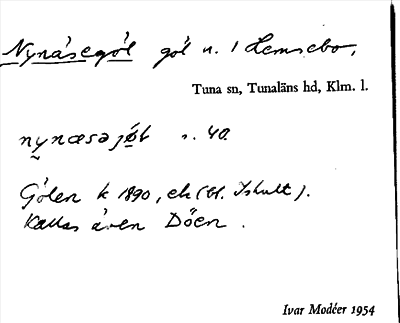 Nynäsegöl göl n. / Hemsebo,
Tuna sn, Tunaläns hd, Klm. l.
nynæsəjøl s. 40.
Gölen k 1890, ek (bl. Ishult).
Kallas även Döen.
Ivar Modéer 1954